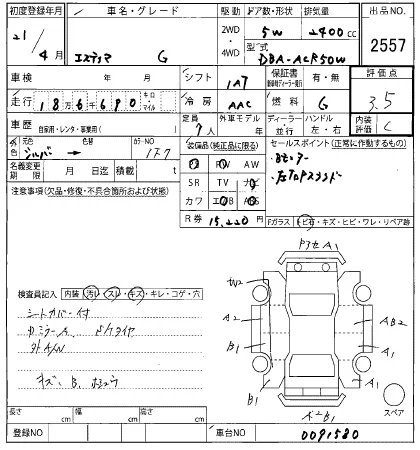 初度登録年月
車名・グレード
駆動
ドア数・形状
排気量
出品NO.
21/
4月
エスティマ G
2WD
・
4WD
5W
2400cc
2557
型式
DBA-ACR50W
車検
年 月
シフト
1AT
保証書
有・無
評価点
3.5
走行
186690
キロ・マイル
冷房
AAC
燃料
G
車歴
自家用・レンタ・事業用( )
定員
7人
外車モデル
年
ディーラー・並行
ハンドル
左・右
内装評価
C
外色
元色
シルバー
色替
→
カラーNO
1F7
装備品(純正品に限る)
セールスポイント(正常に作動するもの)
名義変更期限
月 日迄
積載
t
PS PW AW
SR TV ナビ
カワ エアB ABS
注意事項(欠品・修復・不具合箇所および状態)
R券
15,220円
Fガラス
トビ石・キズ・ヒビ・ワレ・リペア跡
検査員記入
内装
汚レ・スレ・キズ・キレ・コゲ・穴
シートカバー付
A1
W2
A2
AB2
B1
A1
B1
スペア
長さ cm
幅 cm
高さ cm
登録NO
車台NO
0091580